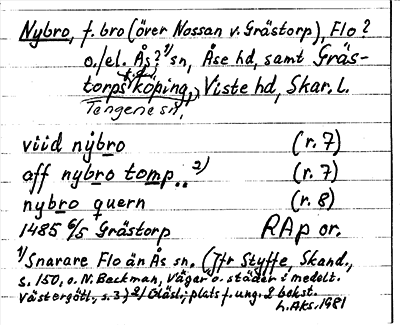 Nybro, f. bro (över Nossan v. Grästorp), Flo?
o./el. Ås? 1) sn, Åse hd, samt Gräs-
torps köping, Viste hd, Skar. l.
Tengene sn,
viid nẏbro (r. 7)
aff nybro tomp.. 2) (r. 7)
nybro quern (r. 8)
1485 6/5 Grästorp RAp or.
1) Snarare Flo än Ås sn. (Jfr Styffe, Skand.,
s. 150, o. N. Beckman, Vägar o. städer i medelt.
Västergötl, s. 3) 2) Oläsl; plats f. ung. 2 bokst.
L. Aks. 1981